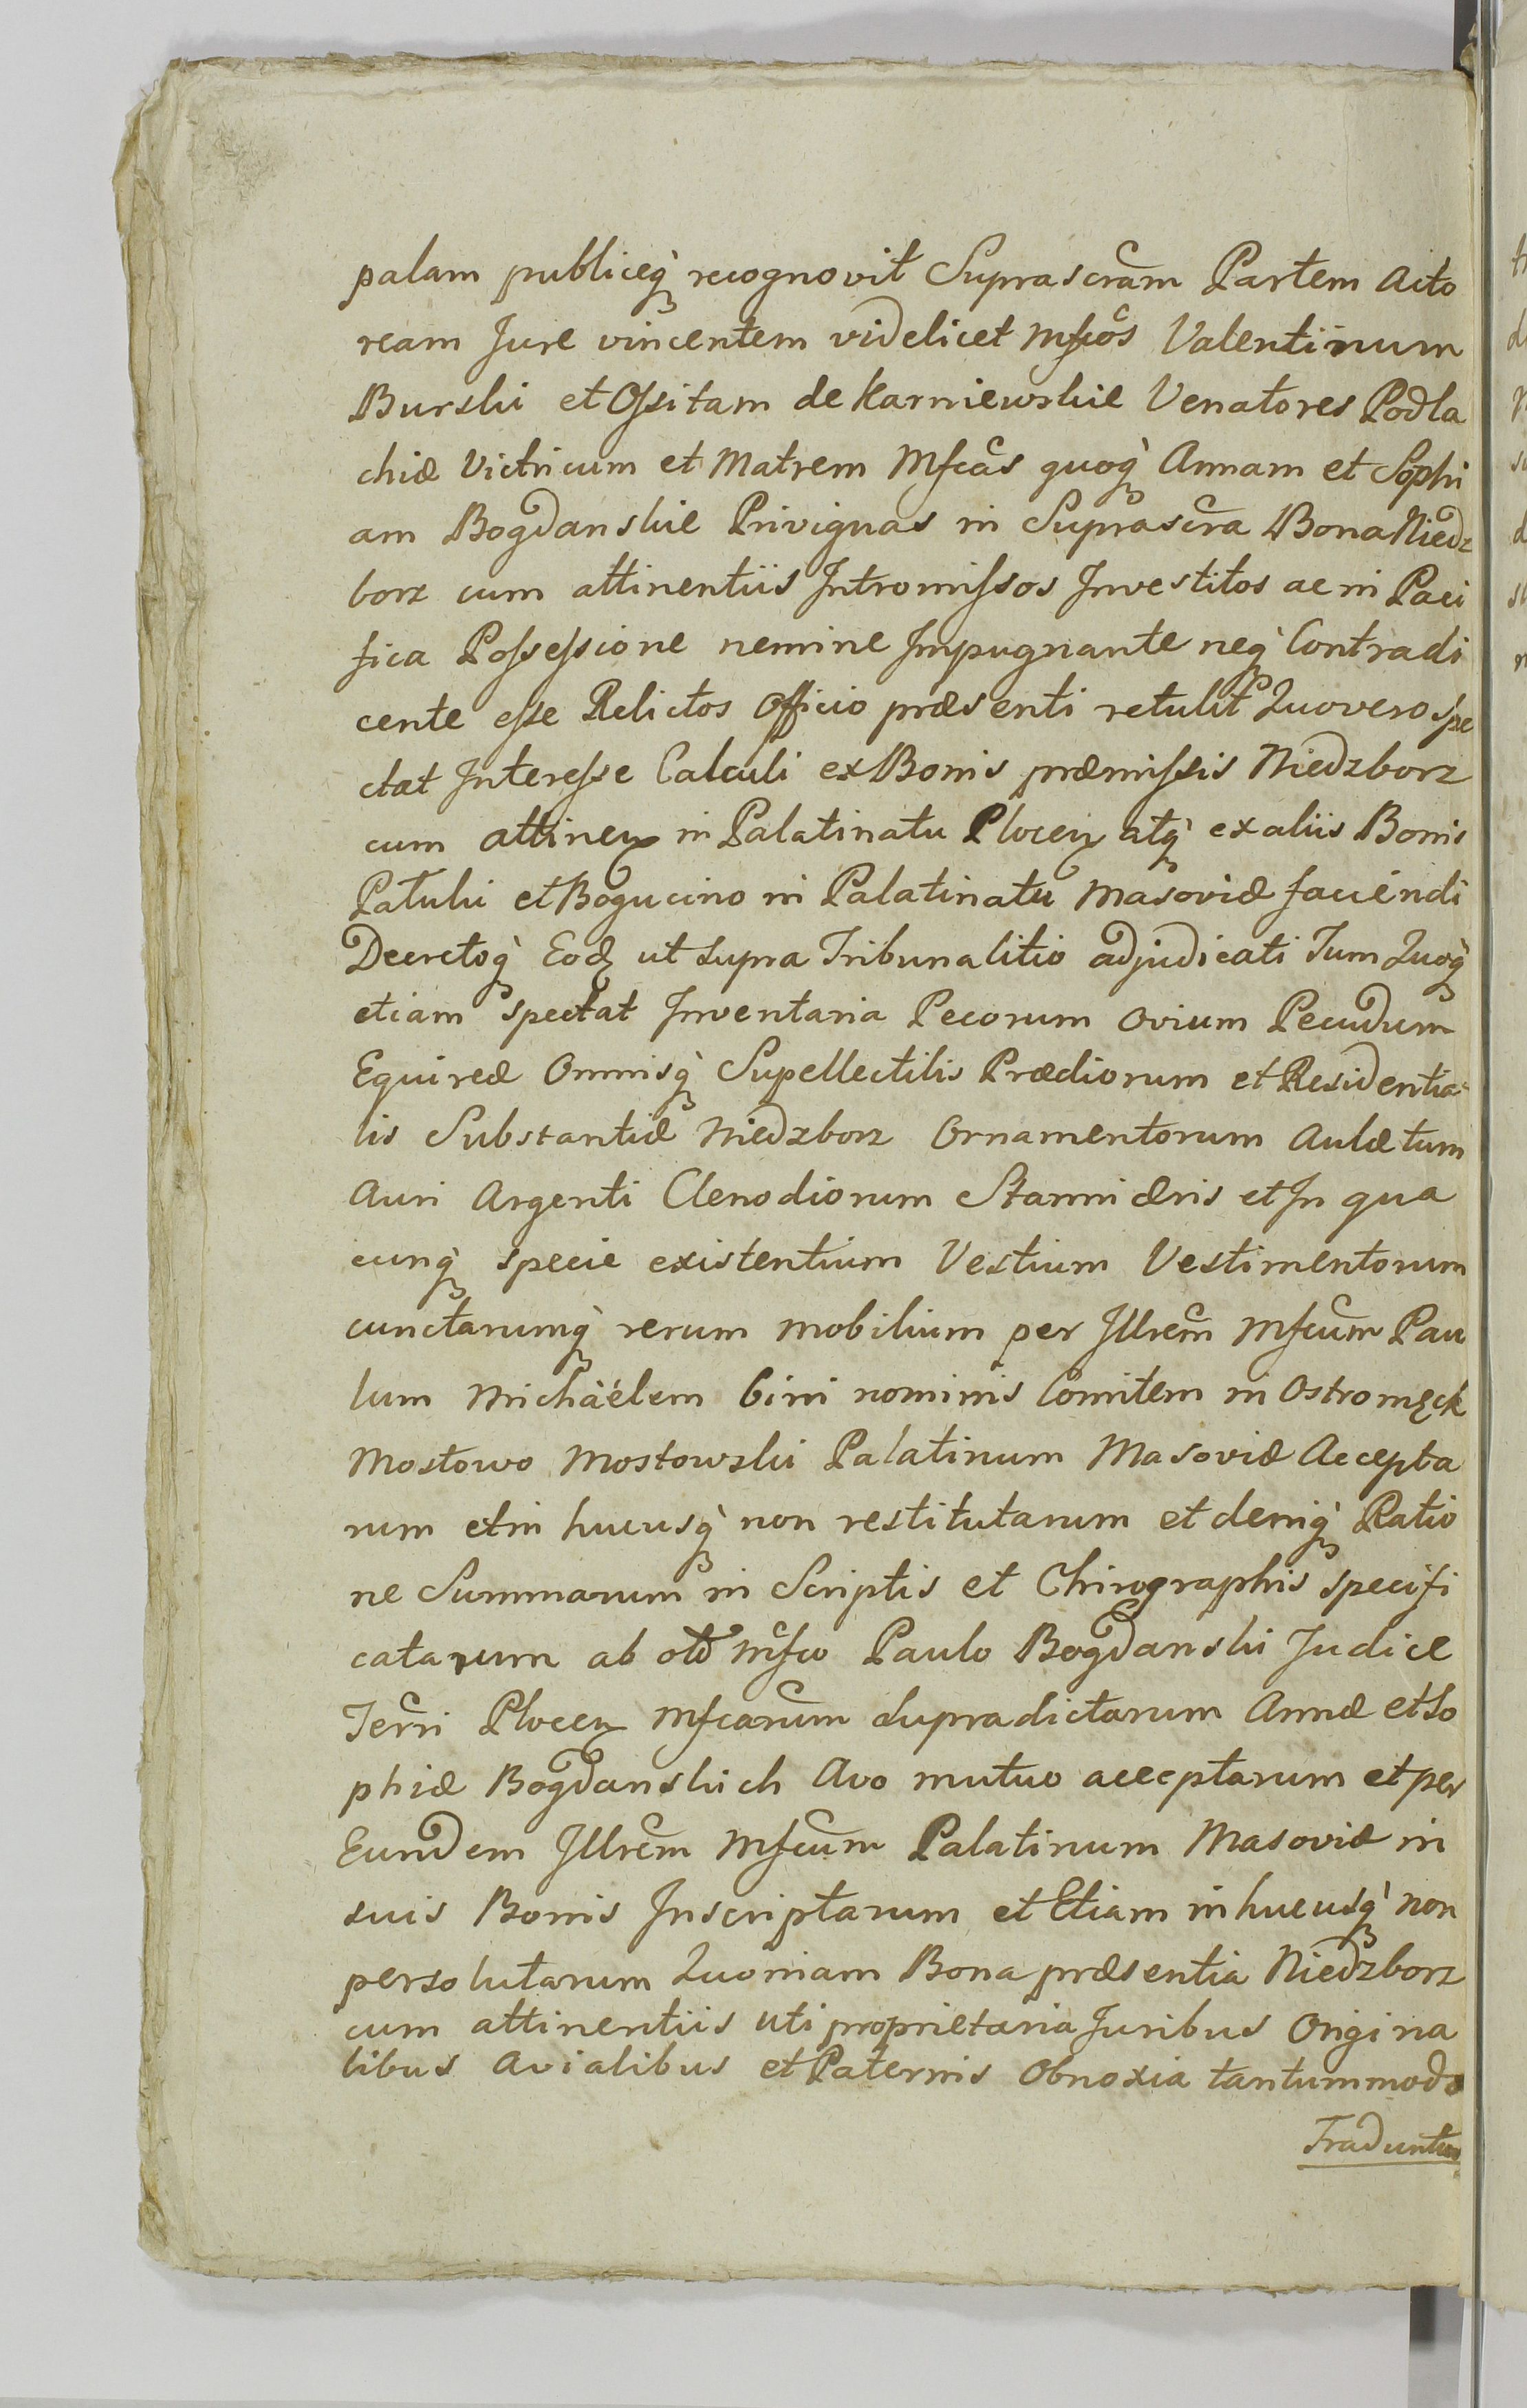 palam publiceq̀ recognovit Suprascram Partem Acto
ream Jure vincentem videlicet Mfcos Valentinum
Burski et Ossitam de Karniewskie Venatores Podla
chiæ Victricum et Matrem Mfcas quoq̀ Annam et Sophi
am Bogdanskie Privignas in Suprascra Bona Niedz
borz cum attinentiis Intromissos Investitos ac in Paci
fica Possessione nemine Impugnante neq̀ Contradi
cente esse Relictos Officio præsenti retulit Quovero spe
ctat Interesse Calculi ex Bonis præmissis Niedzborz
cum attinen in Palatinatu Plocen atq̀ ex aliis Bonis
Patulu et Bogucino in Palatinatu Masoviæ faciendi
Decretoq̀ Eod ut supra Tribunalitio adjudicati Tum Quoq̀
etiam spectat Inventaria Pecorum Ovium Pecudum
Equireæ Omnisq̀ Supellectilis Prædiorum et Residentia
lis Substantiæ Niedzborz Ornamentorum Aulætum
Auri Argenti Clenodiorum Stanni æris et In qua
cunq̀ specie existentium Vestium Vestimentorum
cunctarumq̀ rerum mobilium per Illrem Mfcum Pau
lum Michaëlem bini nominis Comitem in Ostromęck
Mostowo Mostowski Palatinum Masoviæ Accepta
rum et in hucusq̀ non restitutarum et deniq̀ Ratio
ne Summarum in Scriptis et Chirographis specifi
catarum ab olo Mfco Paulo Bogdanski Judice
Terri Plocen Mfcarum supradictarum Annæ et So
phiæ Bogdanskich Avo mutuo acceptarum et per
Eundem Illrem Mfcum Palatinum Masoviæ in
suis Bonis Inscriptarum et Etiam in hucusq̀ non
persolutarum Quoniam Bona præsentia Niedzborz
cum attinentiis uti proprietaria Juribus Origina
libus Avialibus et Paternis Obnoxia tantummodo
Traduntur